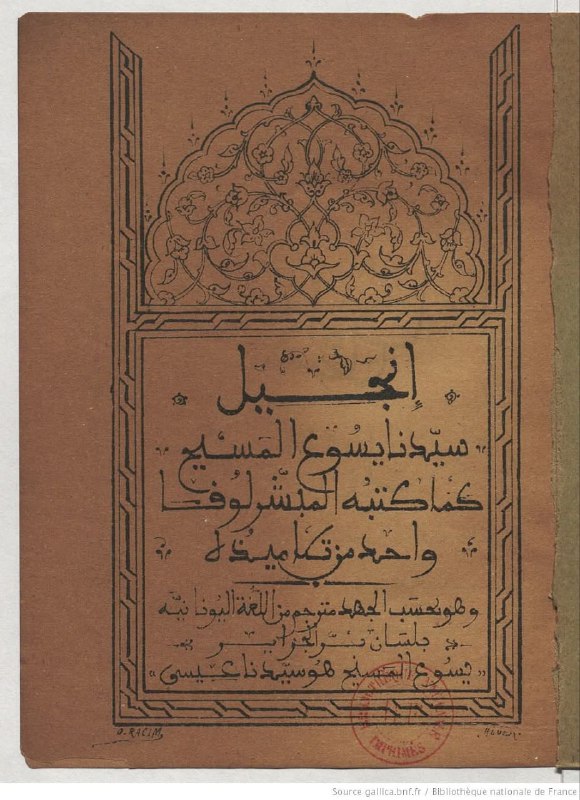 إنجيل
سيّدنا يسوع المسيح
كما كتبه المبشّر لوقا
واحد من تلاميذه
وهو بحسب الجهد مترجم من اللغة اليونانيّة
بلسان برّ الجزاير
«يسوع المسيح هو سيّدنا عيسى»
O. RACIM
IMPRIMÉS
Source gallica.bnf.fr / Bibliothèque nationale de France